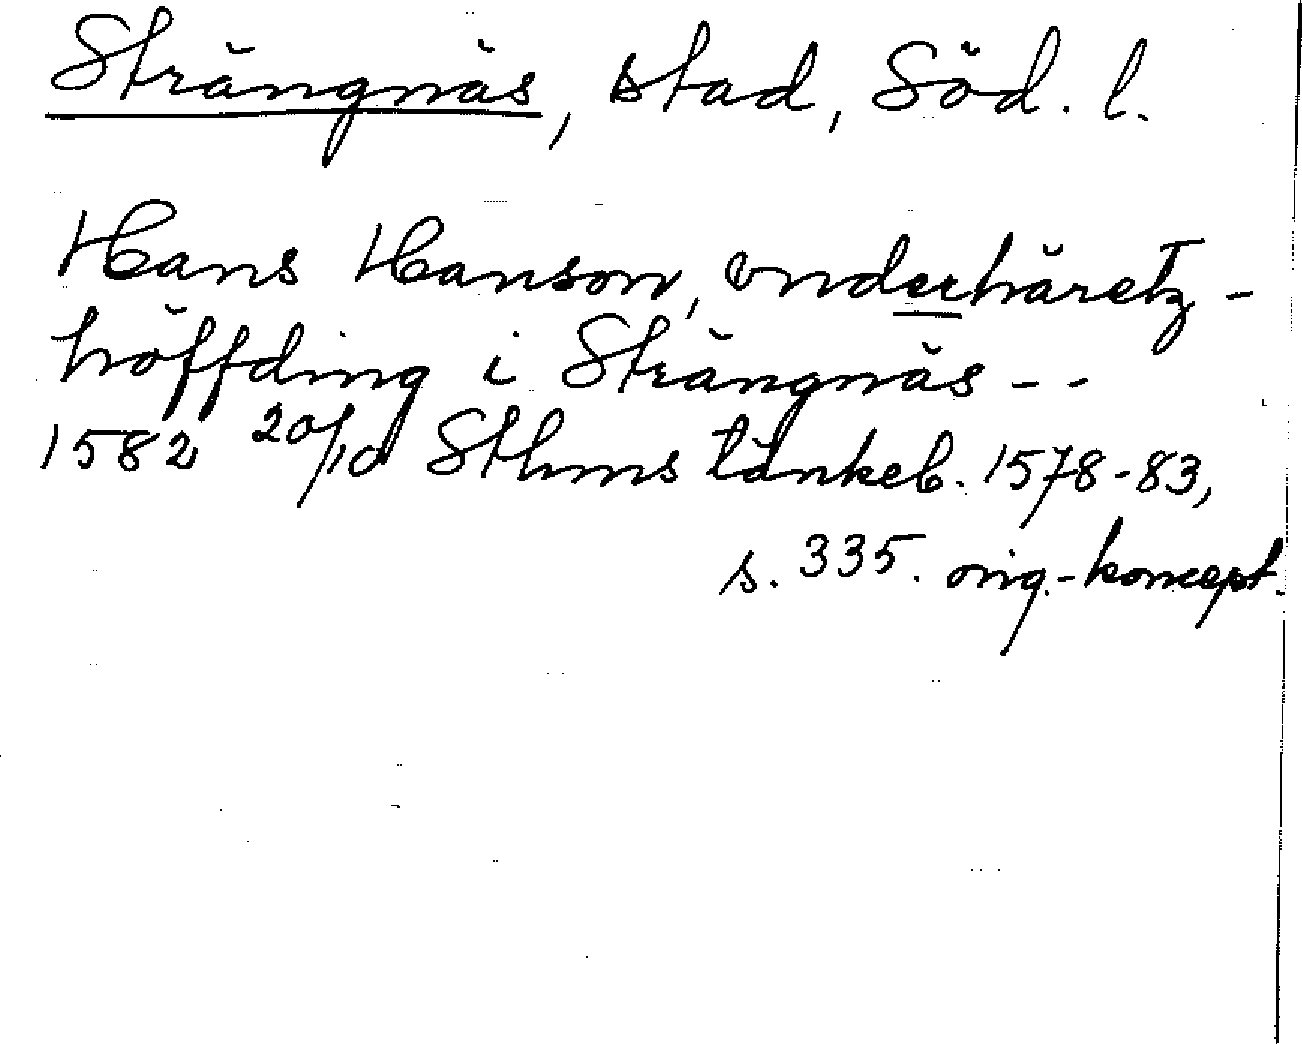 Strängnäs, stad, Söd. l.
Hans Hanson, vnderhäretz-
höffding i Strängnäs - -
1582 20/10 Sthms tänkeb. 1578-83,
s. 335. orig.-koncept.